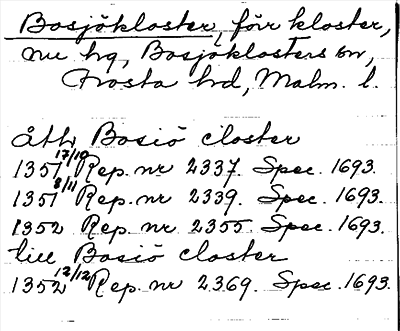 Bosjökloster, förr kloster,
nu hg, Bosjöklosters sn,
Frosta hd, Malm. l.
åth Bosiö closter
1351 17/10 Rep. nr 2337. Spec. 1693.
1351 8/11 Rep. nr 2339. Spec. 1693.
1352 Rep. nr 2355. Spec. 1693.
till Bosiö closter
1352 12/12 Rep. nr 2369. Spec. 1693.